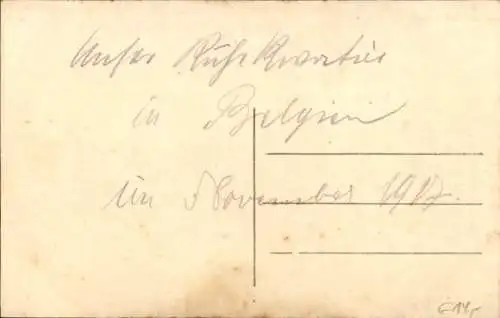 Unser Ruhe Quartier
in Belgien
im November 1917.
€14,-